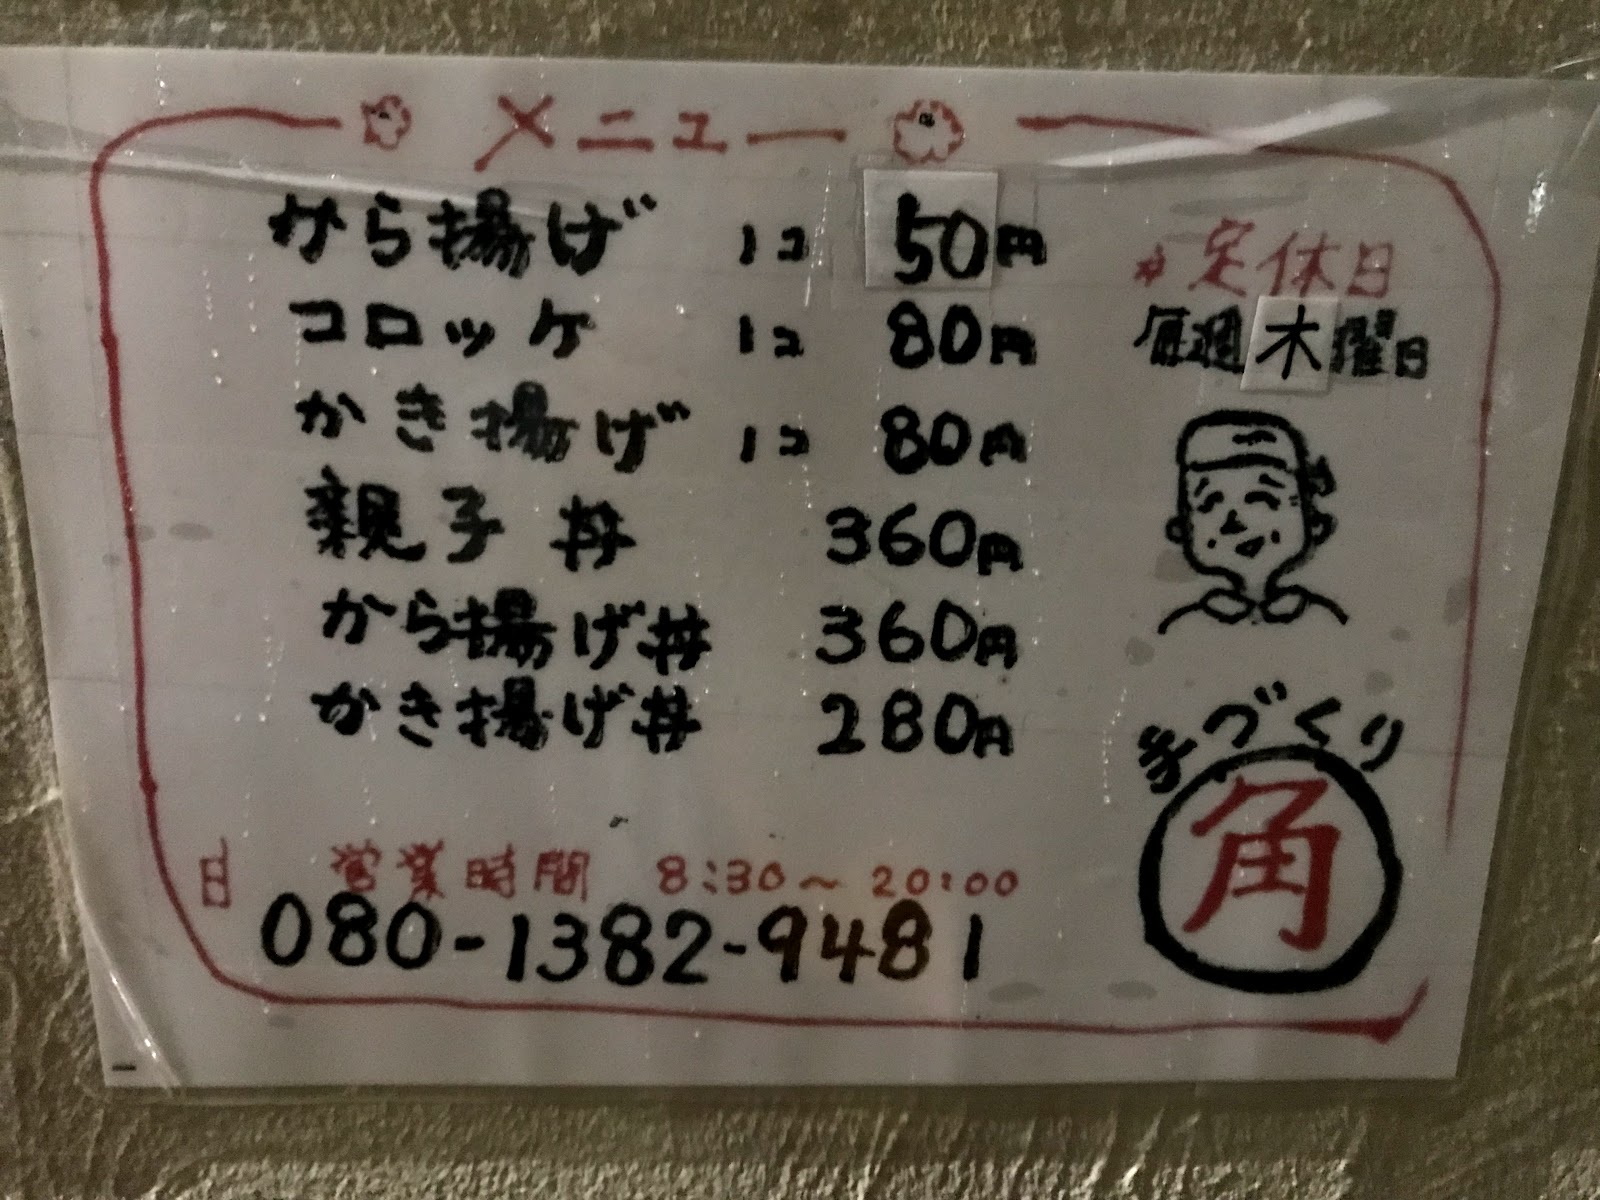 メニュー
から揚げ 1コ 50円
コロッケ 1コ 80円
かき揚げ 1コ 80円
親子丼 360円
から揚げ丼 360円
かき揚げ丼 280円
日 営業時間 8:30〜20:00
080-1382-9481
定休日
毎週木曜日
手づくり
角